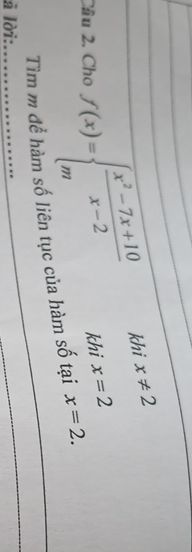 Câu 2. Cho f(x) = { (x² − 7x + 10)/(x − 2) khi x ≠ 2
{ m khi x = 2
Tìm m để hàm số liên tục của hàm số tại x = 2.
lời: